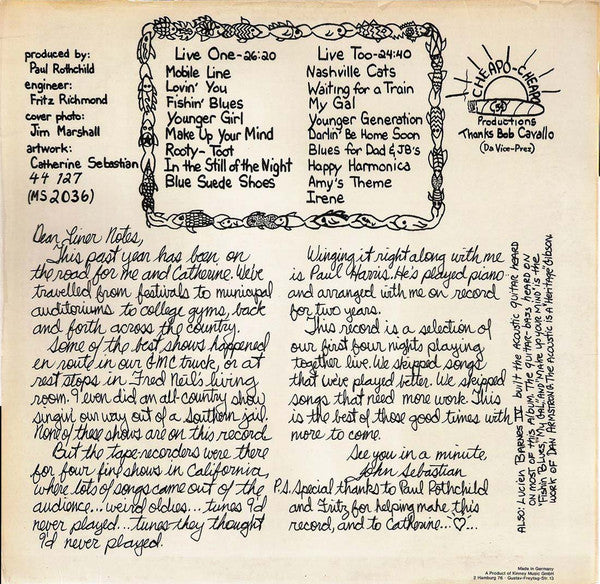 produced by:
Paul Rothchild
engineer:
Fritz Richmond
cover photo:
Jim Marshall
artwork:
Catherine Sebastian
44 127
(MS 2036)
Live One-26:20
Mobile Line
Lovin' You
Fishin' Blues
Younger Girl
Make Up Your Mind
Rooty-Toot
In the Still of the Night
Blue Suede Shoes
Live Too-24:40
Nashville Cats
Waiting for a Train
My Gal
Younger Generation
Darlin' Be Home Soon
Blues for Dad & JB's
Happy Harmonica
Amy's Theme
Irene
CHEAPO-CHEAPO
Productions
Thanks Bob Cavallo
(Da Vice-Prez)
Dear Liner Notes,
This past year has been on
the road for me and Catherine. We've
travelled from festivals to municipal
auditoriums to college gyms, back
and forth across the country.
Some of the best shows happened
en route in our GMC truck, or at
rest stops in Fred Neil's living
room. I even did an all-country show
singin' our way out of a Southern jail.
None of these shows are on this record.
But the tape-recorders were there
for four fine shows in California
where lots of songs came out of the
audience... weird oldies... tunes I'd
never played... tunes they thought
I'd never played.
Winging it right along with me
is Paul Harris. He's played piano
and arranged with me on record
for two years.
This record is a selection of
our first four nights playing
together live. We skipped songs
that we've played better. We skipped
songs that need more work. This
is the best of those good times with
more to come.
See you in a minute,
John Sebastian
P.S. Special thanks to Paul Rothchild
and Fritz for helping make this
record, and to Catherine...♡...
ALSO: LUCIEN BARNES IV built the acoustic guitar HEARD
ON MOST OF THIS ALBUM. THE GUITAR-BASS HEARD ON
"FISHIN' BLUES," "MY GAL," AND "MAKE UP YOUR MIND" IS THE
WORK OF DAN ARMSTRONG. THE ACOUSTIC IS A "HERITAGE" GIBSON.
Made in Germany
A Product of Kinney Music GmbH
2 Hamburg 76 · Gustav-Freytag-Str. 13